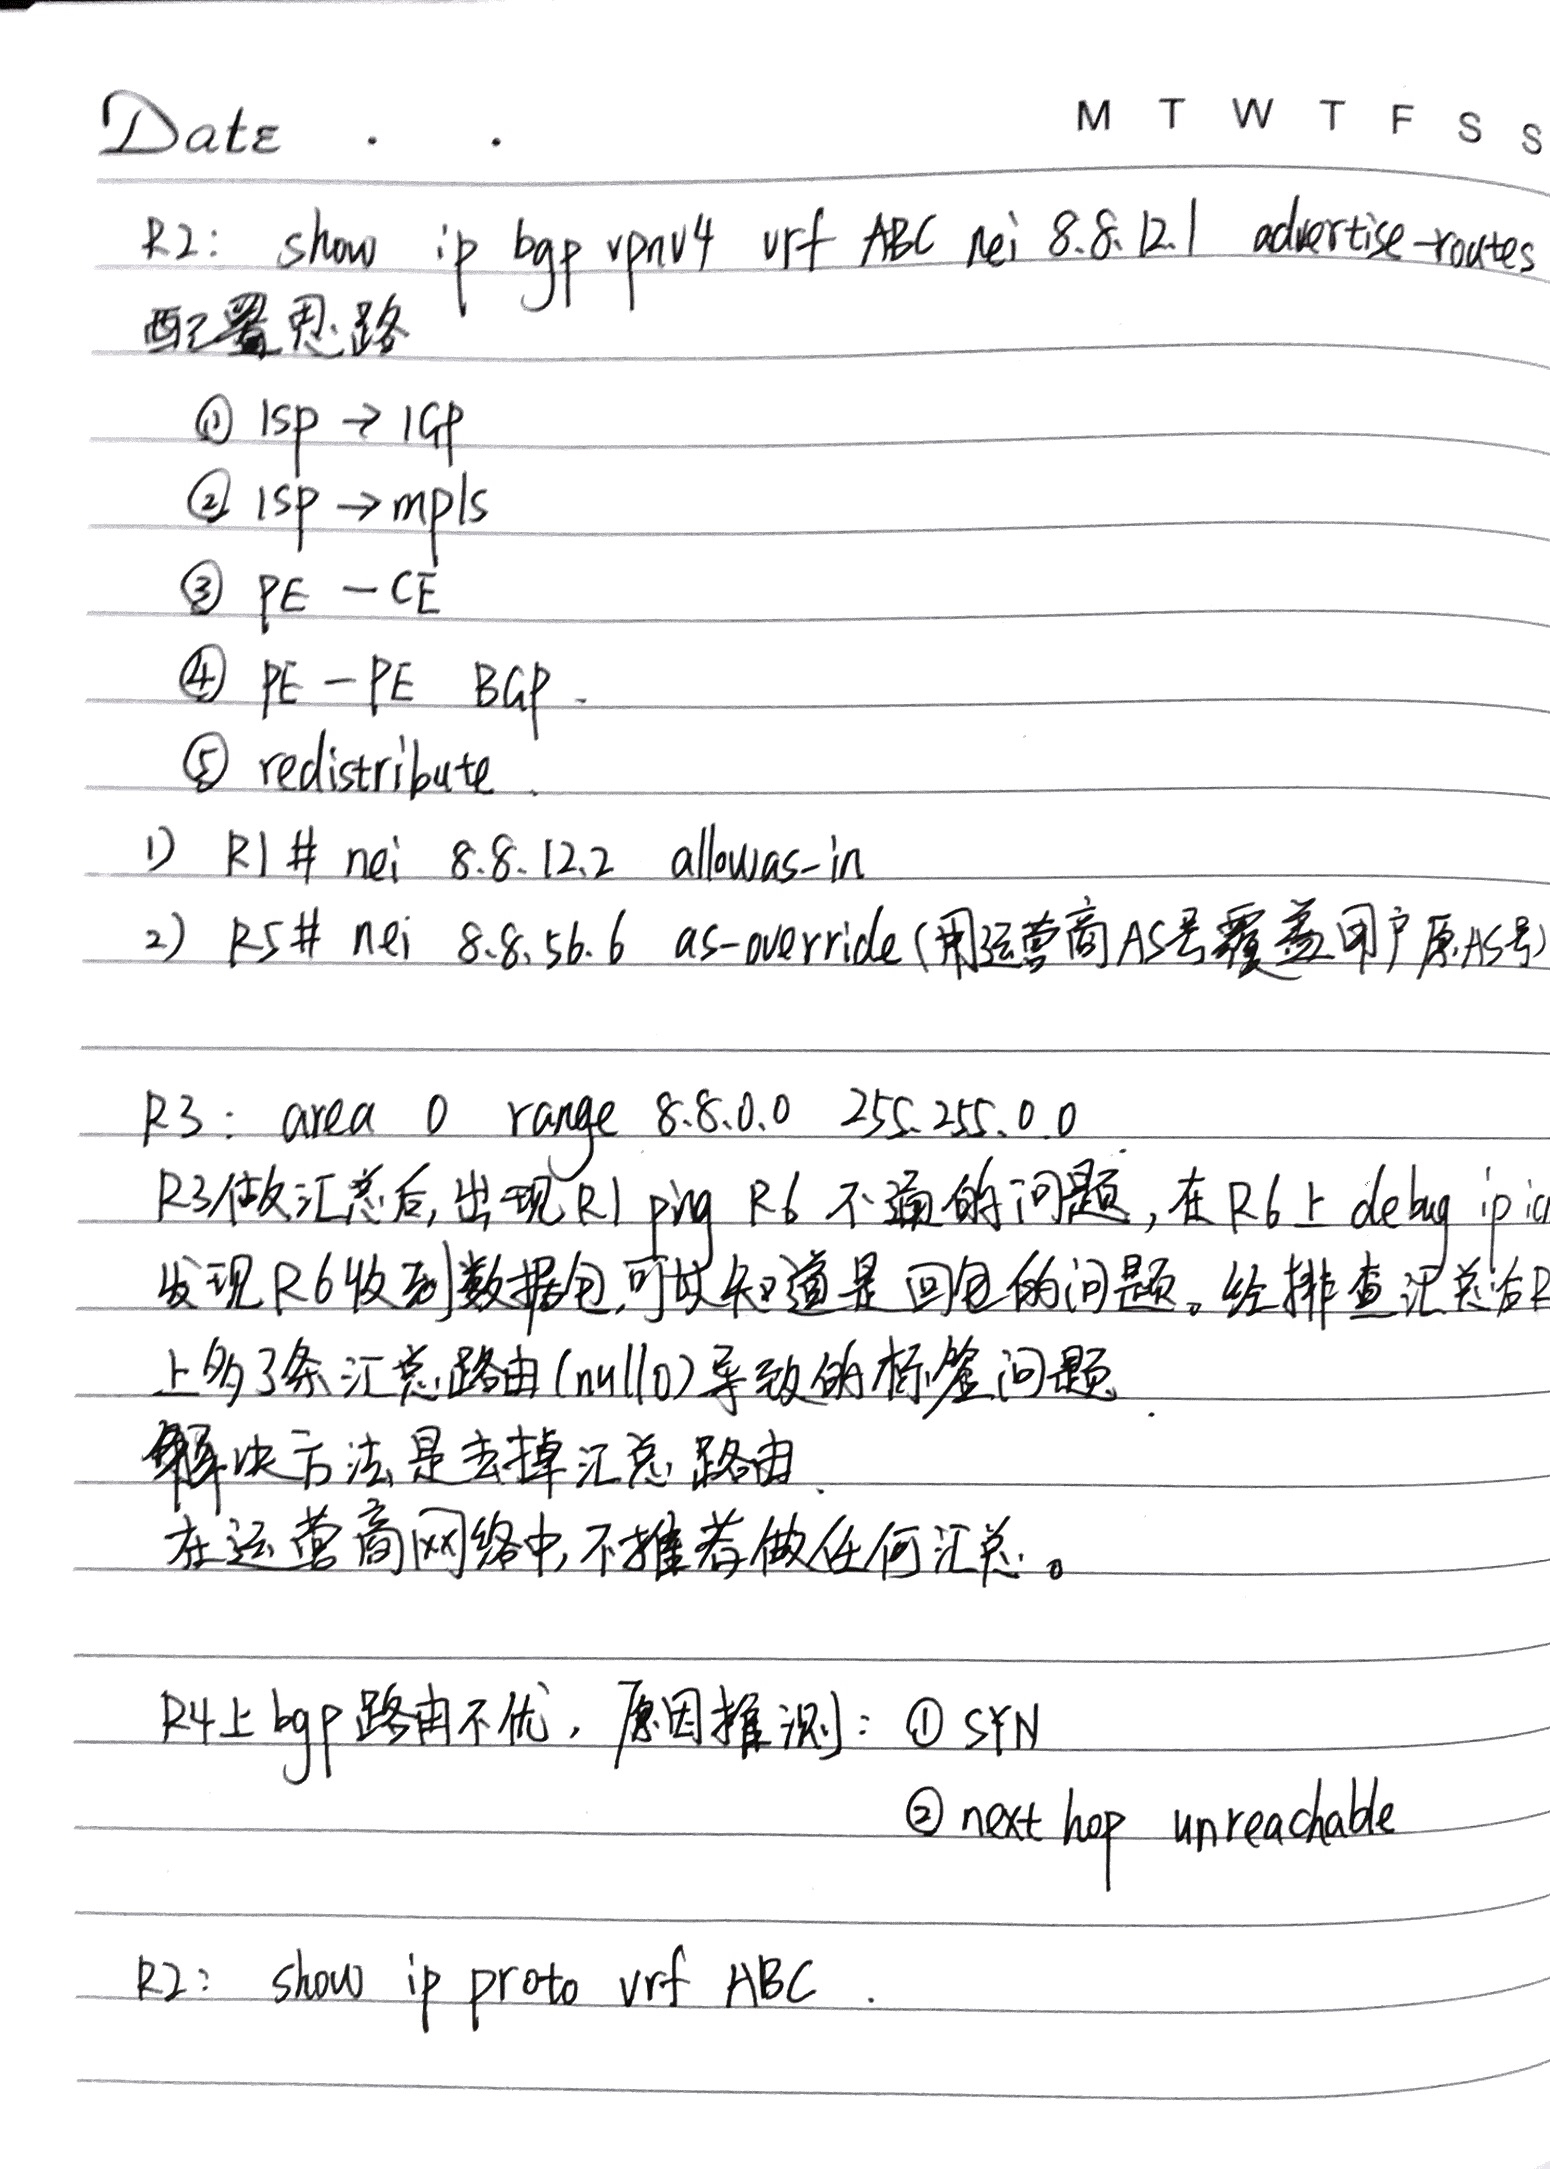 Date . .
M T W T F S S
R2: show ip bgp vpnv4 vrf ABC nei 8.8.12.1 advertise-routes
配置思路
① ISP → IGP
② ISP → mpls
③ PE - CE
④ PE - PE BGP.
⑤ redistribute.
1) R1# nei 8.8.12.2 allowas-in
2) R5# nei 8.8.56.6 as-override(用运营商AS号覆盖用户原AS号)
R3: area 0 range 8.8.0.0 255.255.0.0
R3做汇总后,出现R1 ping R6 不通的问题,在R6上debug ip ic
发现R6收到数据包,可以知道是回包的问题。经排查汇总后R
上多了条汇总路由(null0)导致的标签问题.
解决方法是去掉汇总路由.
在运营商网络中,不推荐做任何汇总。
R4上bgp路由不优,原因推测: ① SYN
② next hop unreachable
R2: show ip proto vrf ABC.